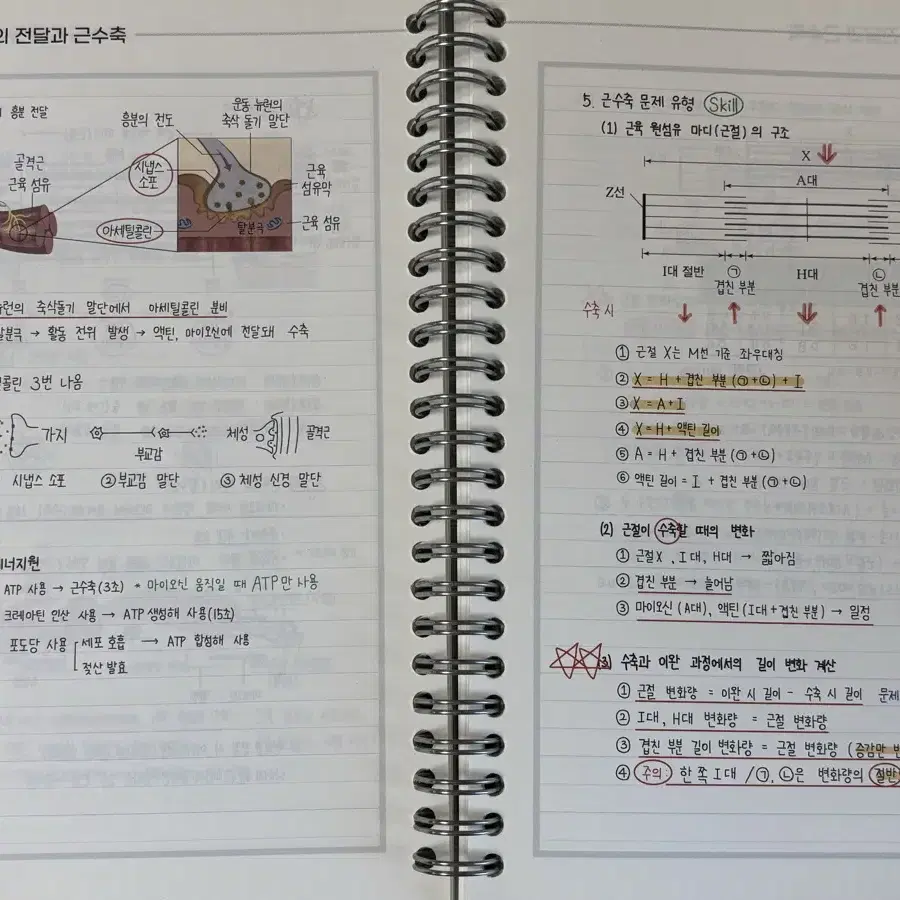 의 전달과 근수축
흥분 전달
흥분의 전도
운동 뉴런의
축삭 돌기 말단
골격근
근육 섬유
시냅스
소포
아세틸콜린
탈분극
근육
섬유막
근육 섬유
뉴런의 축삭돌기 말단에서 아세틸콜린 분비
탈분극 → 활동 전위 발생 → 액틴, 마이오신에 전달돼 수축
콜린 3번 나옴
가지
부교감
체성
골격근
시냅스 소포
② 부교감 말단
③ 체성 신경 말단
에너지원
ATP 사용 → 근수축(3초) * 마이오신 움직일 때 ATP만 사용
크레아틴 인산 사용 → ATP 생성해 사용(15초)
포도당 사용 세포 호흡 → ATP 합성해 사용
젖산 발효
5. 근수축 문제 유형 Skill
(1) 근육 원섬유 마디(근절)의 구조
X
A대
Z선
I대 절반
㉠
겹친 부분
H대
㉡
겹친 부분
수축 시
① 근절 X는 M선 기준 좌우대칭
② X = H + 겹친 부분(㉠+㉡) + I
③ X = A + I
④ X = H + 액틴 길이
⑤ A = H + 겹친 부분(㉠+㉡)
⑥ 액틴 길이 = I + 겹친 부분(㉠+㉡)
(2) 근절이 수축할 때의 변화
① 근절X, I대, H대 → 짧아짐
② 겹친 부분 → 늘어남
③ 마이오신(A대), 액틴(I대+겹친 부분) → 일정
(3) 수축과 이완 과정에서의 길이 변화 계산
① 근절 변화량 = 이완 시 길이 - 수축 시 길이 문제
② I대, H대 변화량 = 근절 변화량
③ 겹친 부분 길이 변화량 = 근절 변화량 (증감만
④ 주의: 한 쪽 I대 / ㉠, ㉡은 변화량의 절반